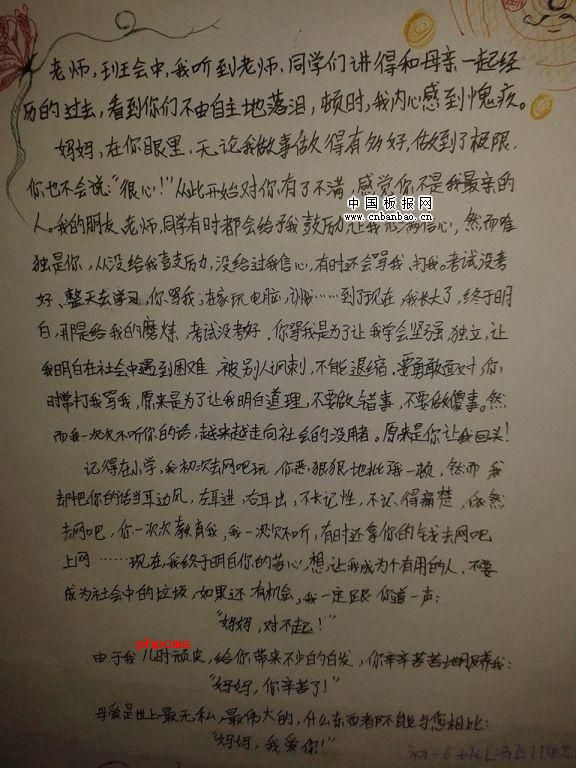 老师,班会中,我听到老师,同学们讲得和母亲一起经
历的过去,看到你们不由自主地落泪,顿时,我内心感到愧疚。
妈妈,在你眼里,无论我做事做得有多好,做到了极限,
你也不会说:“很心!”从此开始对你有了不满,感觉你不是我最亲的
中国板报网
www.cnbanbao.cn
人。我的朋友、老师,同学有时都会给予我鼓励,让我充满信心,然而唯
独是你,从没给我鼓励,没给过我信心,有时还会骂我,打我。考试没考
好、整天去学习,你骂我;在家玩电脑,……到了现在,我长大了,终于明
白,那是给我的磨炼,考试没考好,你骂我是为了让我学会坚强,独立,让
我明白在社会中遇到困难,被别人讽刺,不能退缩,要勇敢面对,你
时常打我骂我,原来是为了让我明白道理,不要做错事,不要做傻事。然
而我一次次不听你的话,越来越走向社会的没用者。原来是你让我回头!
记得在小学,我初次去网吧玩,你恶狠狠地批我一顿,然而我
却把你的话当耳边风,左耳进,右耳出,不长记性,不记得痛楚,依然
去网吧,你一次次教育我,我一次次不听,有时还拿你的钱去网吧
上网……现在,我终于明白你的苦心,想让我成为个有用的人,不要
成为社会中的垃圾,如果还有机会,我一定跟你道一声:
“妈妈,对不起!”
phpcms
由于我儿时顽皮,给你带来不少的白发,你辛辛苦苦地养我:
“妈妈,你辛苦了!”
母爱是世上最无私,最伟大的,什么东西都不能与您相比:
“妈妈,我爱你!”
初一6班